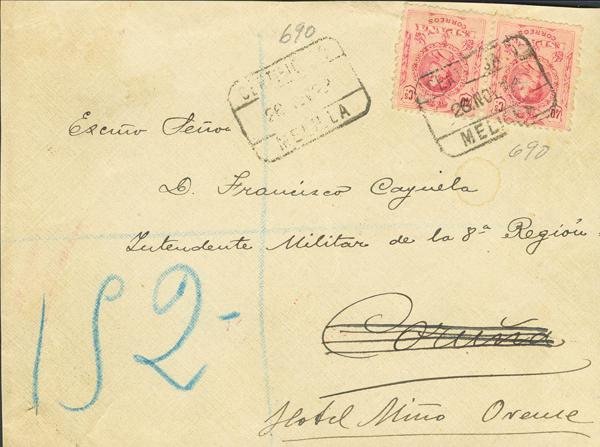 690
CERTIFICADO
26 NOV 12
MELILLA
CORREOS CORREOS
26 NOV 12
MELILLA
690
Excmo Señor
D. Francisco Cayuela
Intendente Militar de la 8ª Región.
152-
Coruña
Hotel Miño Orense